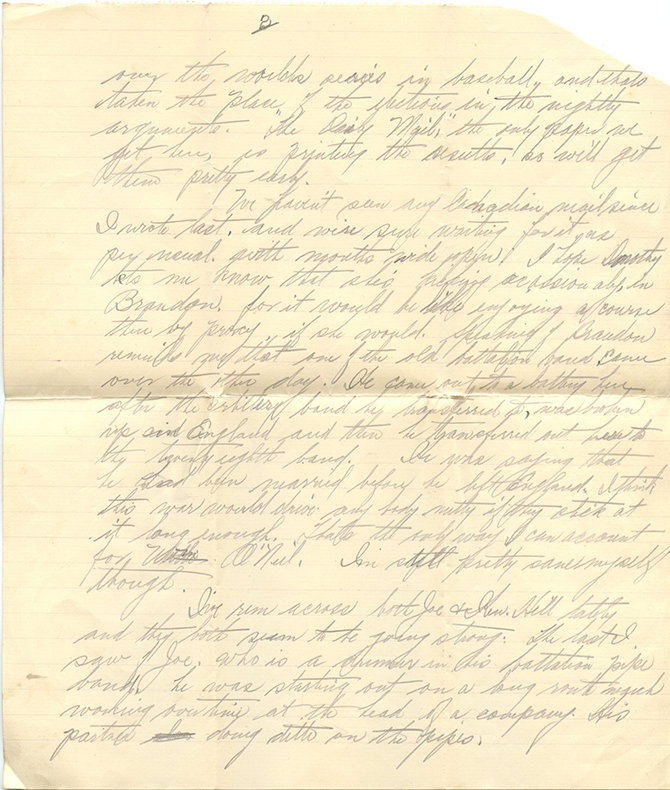 2
over the worlds series in baseball, and thats
taken the place of the elections in the nightly
arguments. "The Daily Mail," the only paper we
get here, is printing the results, so will get
them pretty early.
We havent seen any Canadian mail since
I wrote last. and we're sure waiting for it, as
per usual. with mouths wide open! I hope Dorothy
lets me know that she's taking occasionally, in
Brandon. for it would be like enjoying a course
there by proxy if she would. Speaking of Brandon
reminds me that one of the old battalion band came
over the other day. He came out to a battery here
after the artillery band he transferred to, was broken
up, in England and then he transferred out here to
the twenty eighth band. He was saying that
he had been married before he left England. I think
this war would drive any body nutty if they stick at
it long enough. That's the only way I can account
for O'Neil. I'm still pretty sane myself
though.
I've run across both Joe & Ken. Hill lately
and they both seem to be going strong. The last I
saw of Joe. who is a drummer in his battalion pipe
band, he was starting out on a long route march
working overtime at the head of a company. His
partner doing ditto on the pipes.